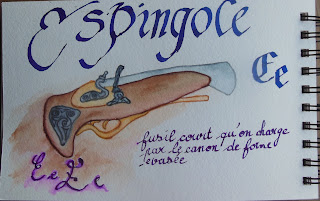 Espingole
Ee
fusil court qu'on charge
par le canon de forme
évasée
E e E e